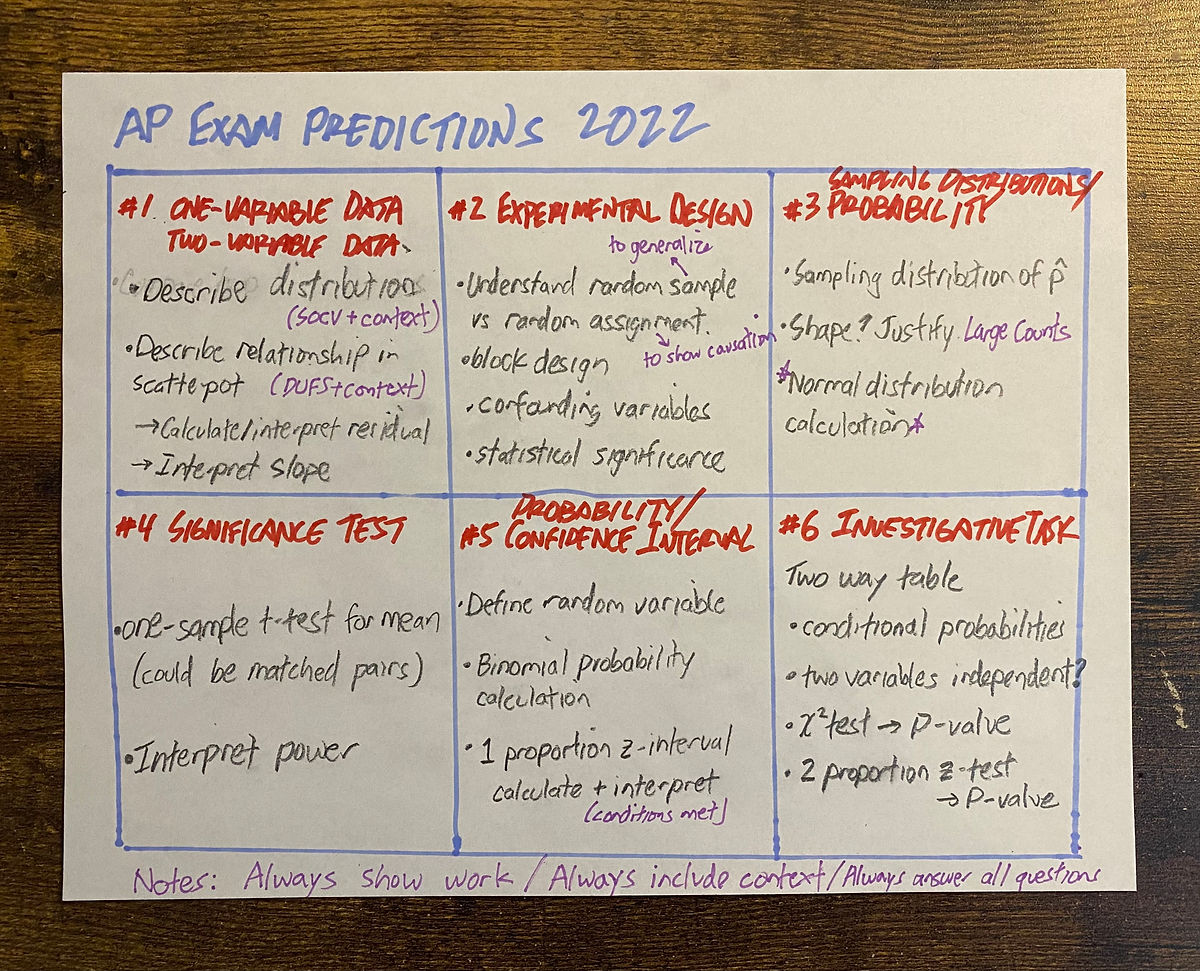 AP EXAM PREDICTIONS 2022
#1. ONE-VARIABLE DATA
TWO-VARIABLE DATA
• Describe distributions
(SOCV + context)
• Describe relationship in
scatterpot (DUFS + context)
→ Calculate/interpret residual
→ Interpret slope
#2 EXPERIMENTAL DESIGN
to generalize
• Understand random sample
vs random assignment.
to show causation
• block design
• confounding variables
• statistical significance
SAMPLING DISTRIBUTIONS/
#3 PROBABILITY
• Sampling distribution of p̂
• Shape? Justify. Large Counts
*Normal distribution
calculation*
#4 SIGNIFICANCE TEST
• one-sample t-test for mean
(could be matched pairs)
• Interpret power
PROBABILITY/
#5 CONFIDENCE INTERVAL
• Define random variable
• Binomial probability
calculation
• 1 proportion z-interval
calculate + interpret
(conditions met)
#6 INVESTIGATIVE TASK
Two way table
• conditional probabilities
• two variables independent?
• χ² test → P-value
• 2 proportion z-test
→ P-value
Notes: Always show work / Always include context / Always answer all questions